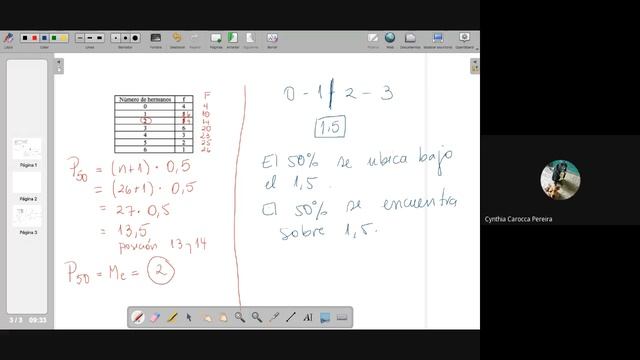 Lápiz
Color
Línea
Borrador
Fondo
Deshacer
Rehacer
Página
Anterior
Siguiente
Borrar
Web
Documentos
Mostrar escritorio
OpenBoard
Número de hermanos f F
0 4 4
1 6 10
2 4 14
3 6 20
4 3 23
5 2 25
6 1 26
P50 = (n+1) · 0,5
= (26+1) · 0,5
= 27 · 0,5
= 13,5
posición 13 y 14
P50 = Me = 2
0 - 1 | 2 - 3
1.5
El 50% se ubica bajo
el 1,5.
El 50% se encuentra
sobre 1,5.
Página 1
Página 2
Página 3
3 / 3 09:33
Cynthia Carocca Pereira